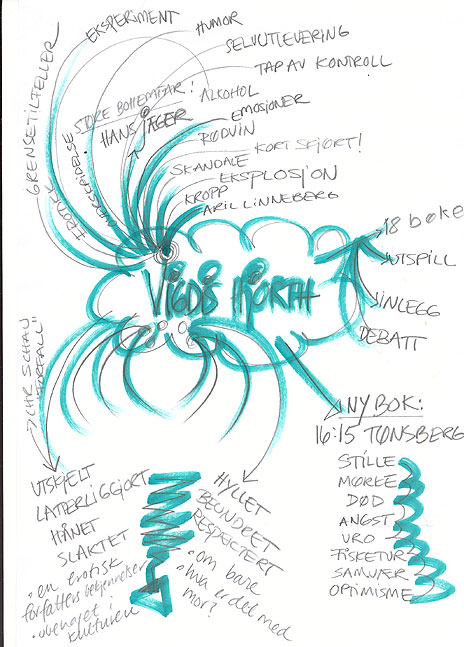 EKSPERIMENT
HUMOR
SELVUTLEVERING
TAP AV KONTROLL
GRENSETILFELLER
EROTIKK
STORE BOHEMFAR:
HANS JÆGER
ALKOHOL
EMOSJONER
RØDVIN
KORT SKJØRT!
SKANDALE
EKSPLOSJON
KROPP
ARIL LINNEBERG
VIGDIS HJORTH
18 bøker
UTSPILL
INNLEGG
DEBATT
NY BOK:
16:15 TØNSBERG
STILLE
MØRKE
DØD
ANGST
URO
FISKETUR
SAMVÆR
OPTIMISME
CHR. SCHAU
"FORFALL"
UTSKJELT
LATTERLIGGJORT
HÅNET
SLAKTET
• en erotisk
forfatters bekjennelser
• ubehaget i
kulturen
HYLLET
BEUNDRET
RESPEKTERT
• om bare
• hva er det med
mor?